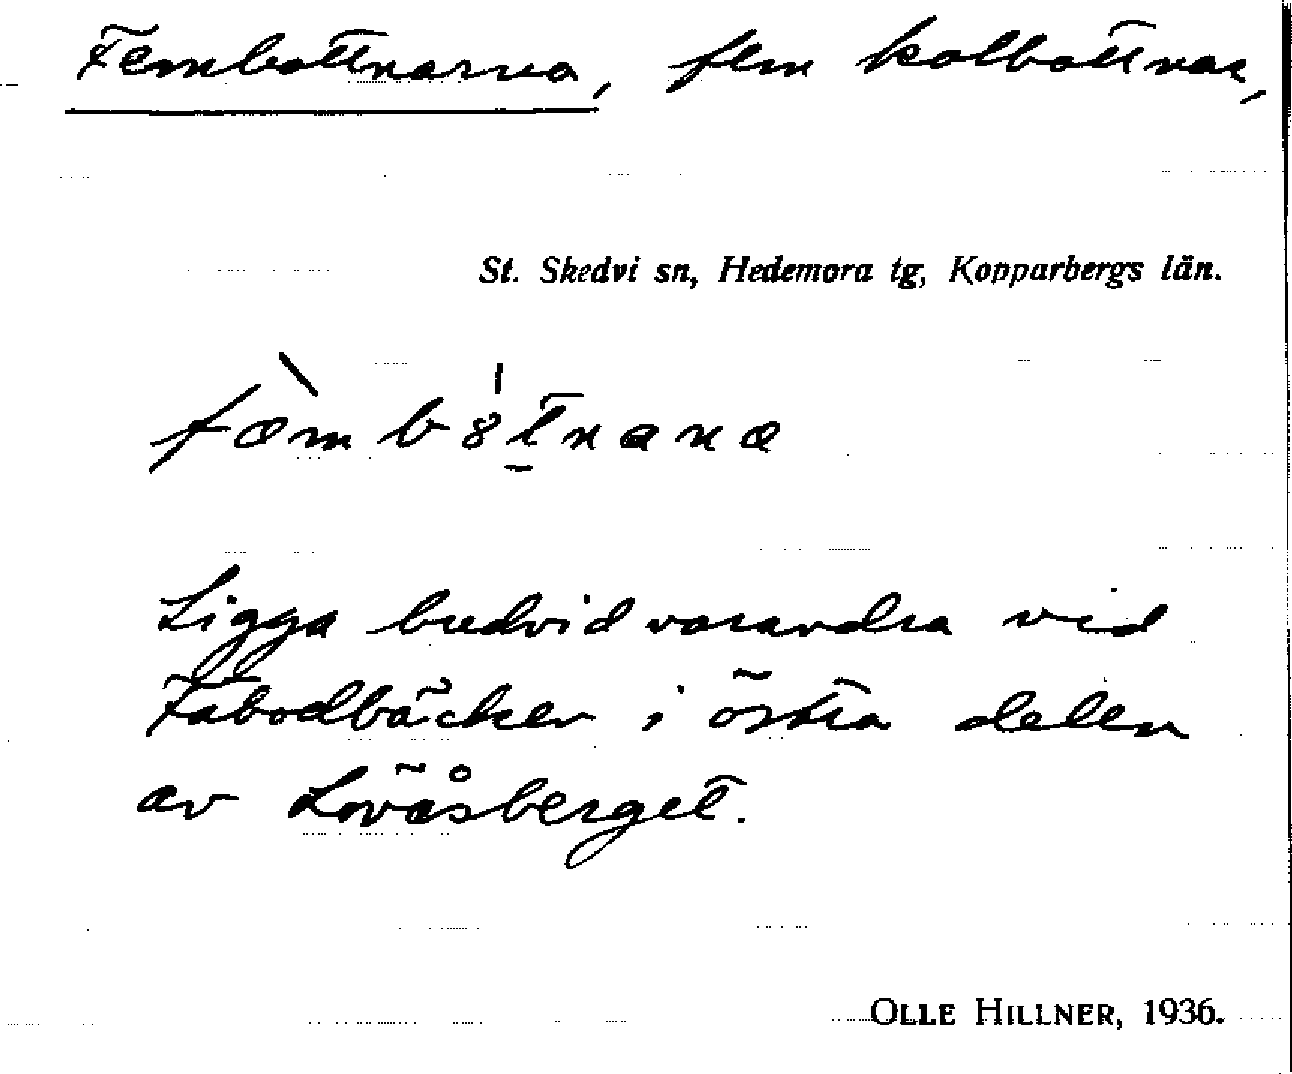 Fembottnarna, fem kolbottnar,
St. Skedvi sn, Hedemora tg, Kopparbergs län.
fæ̀mb8́t̠nana
Ligga bredvid varandra vid
Fäbodbäcken i östra delen
av Lövåsberget.
OLLE HILLNER, 1936.